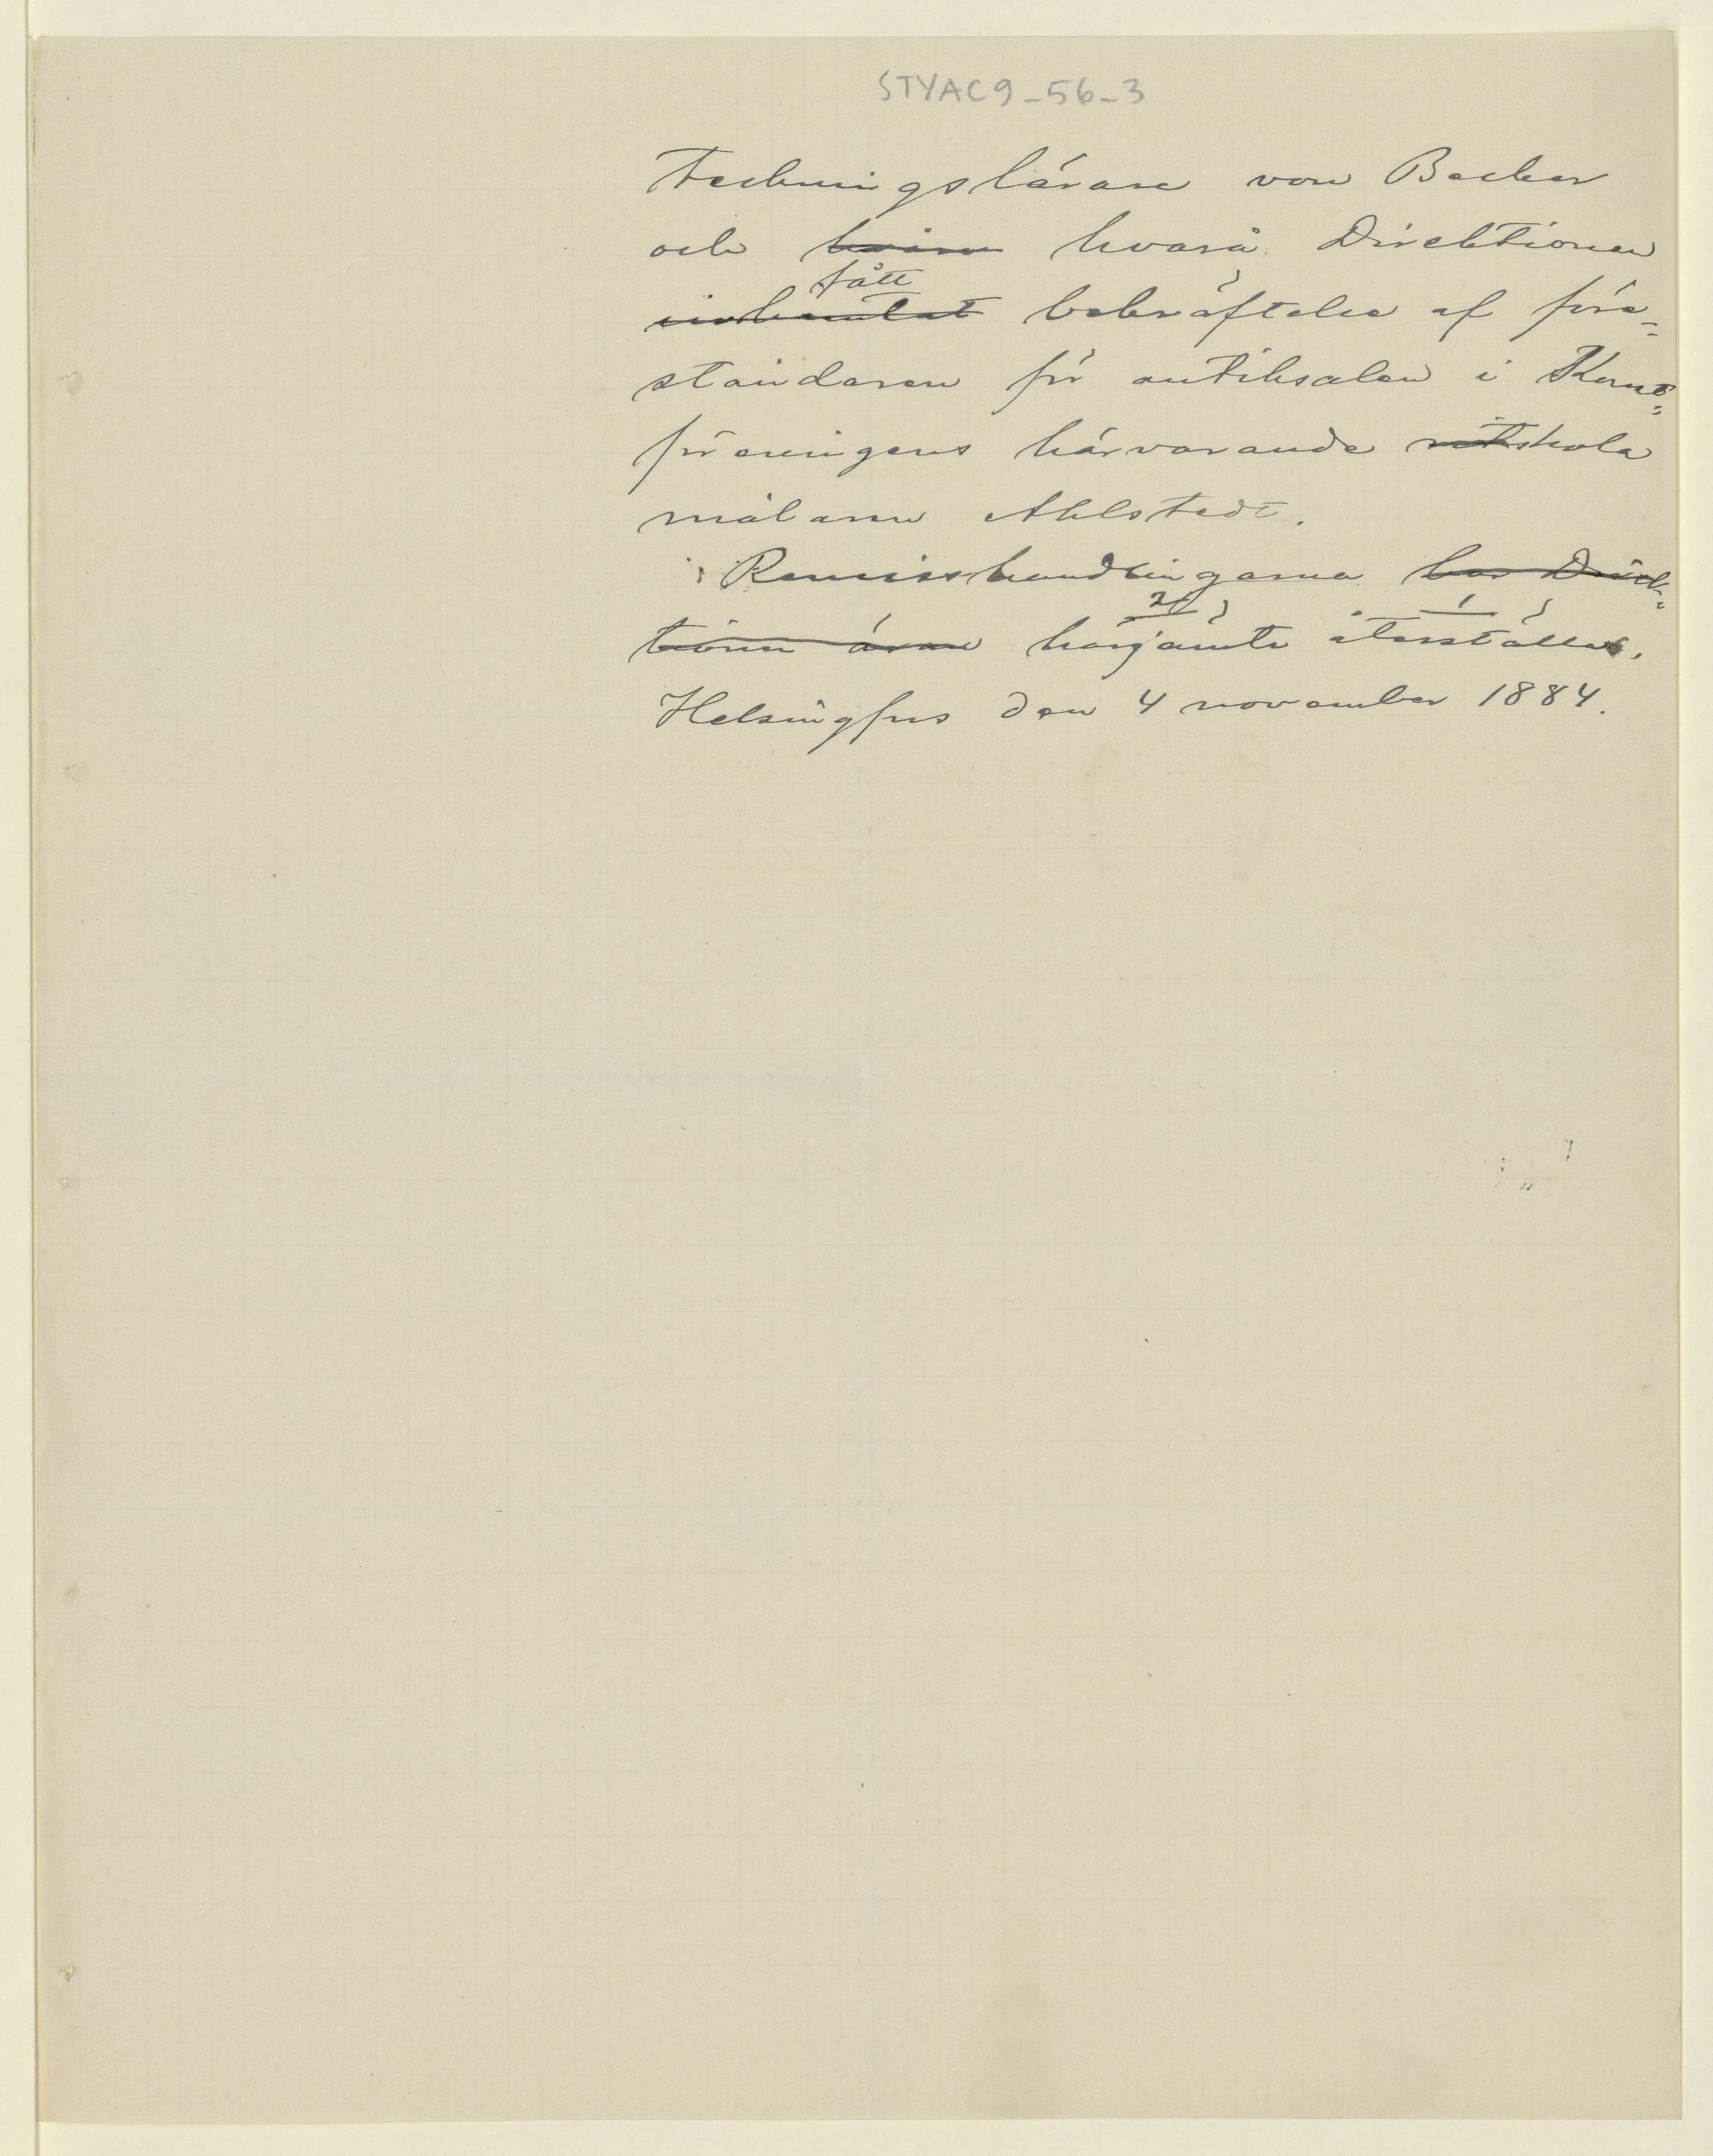 STYAC9-56-3
teckningslärare von Becker
och hvarå Direktionen
fått
inhemtat bekräftelse af före-
ståndaren för antiksalen i Konst-
föreningens härvarande ritskola
målaren Ahlstedt.
Remisshandlingarna har Direk-
2 1
tionen äran härjämte återställas.
Helsingfors den 4 november 1884.